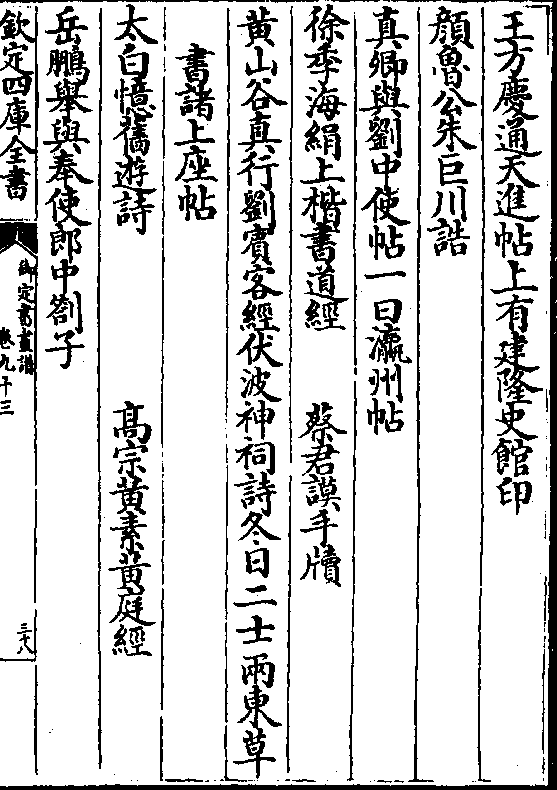 王方慶通天進帖上有建隆史館印
顔魯公朱巨川誥
真卿與劉中使帖一曰瀛州帖
徐季海絹上楷書道經　蔡君謨手牘
黄山谷真行劉賓客經伏波神祠詩冬日二士兩東草
書諸上座帖
太白憶舊遊詩　髙宗黄素黄庭經
岳鵬舉與奉使郎中劄子
欽定四庫全書
御定書畫譜
卷九十三
三十八